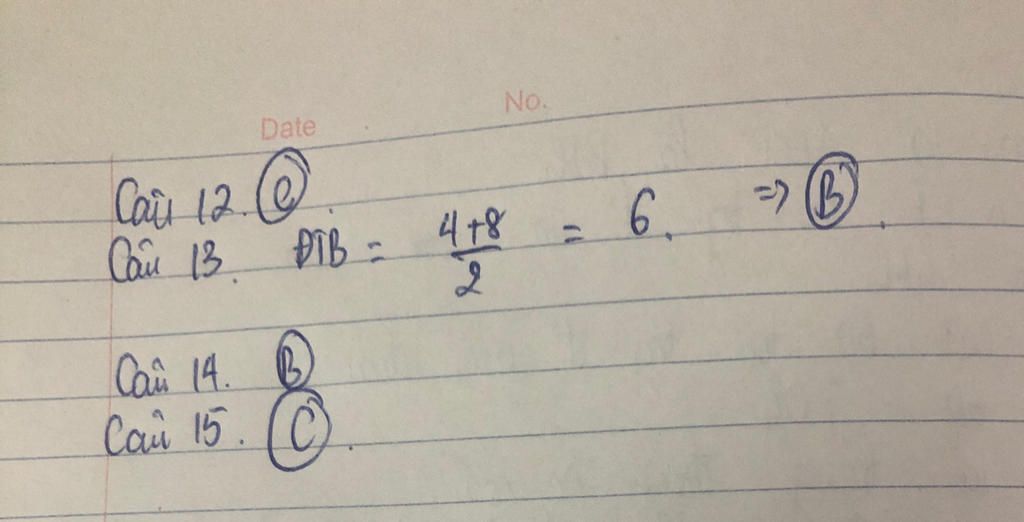 No.
Date
Câu 12. C.
Câu 13. ĐTB = (4+8)/2 = 6. => B.
Câu 14. B
Câu 15. C.